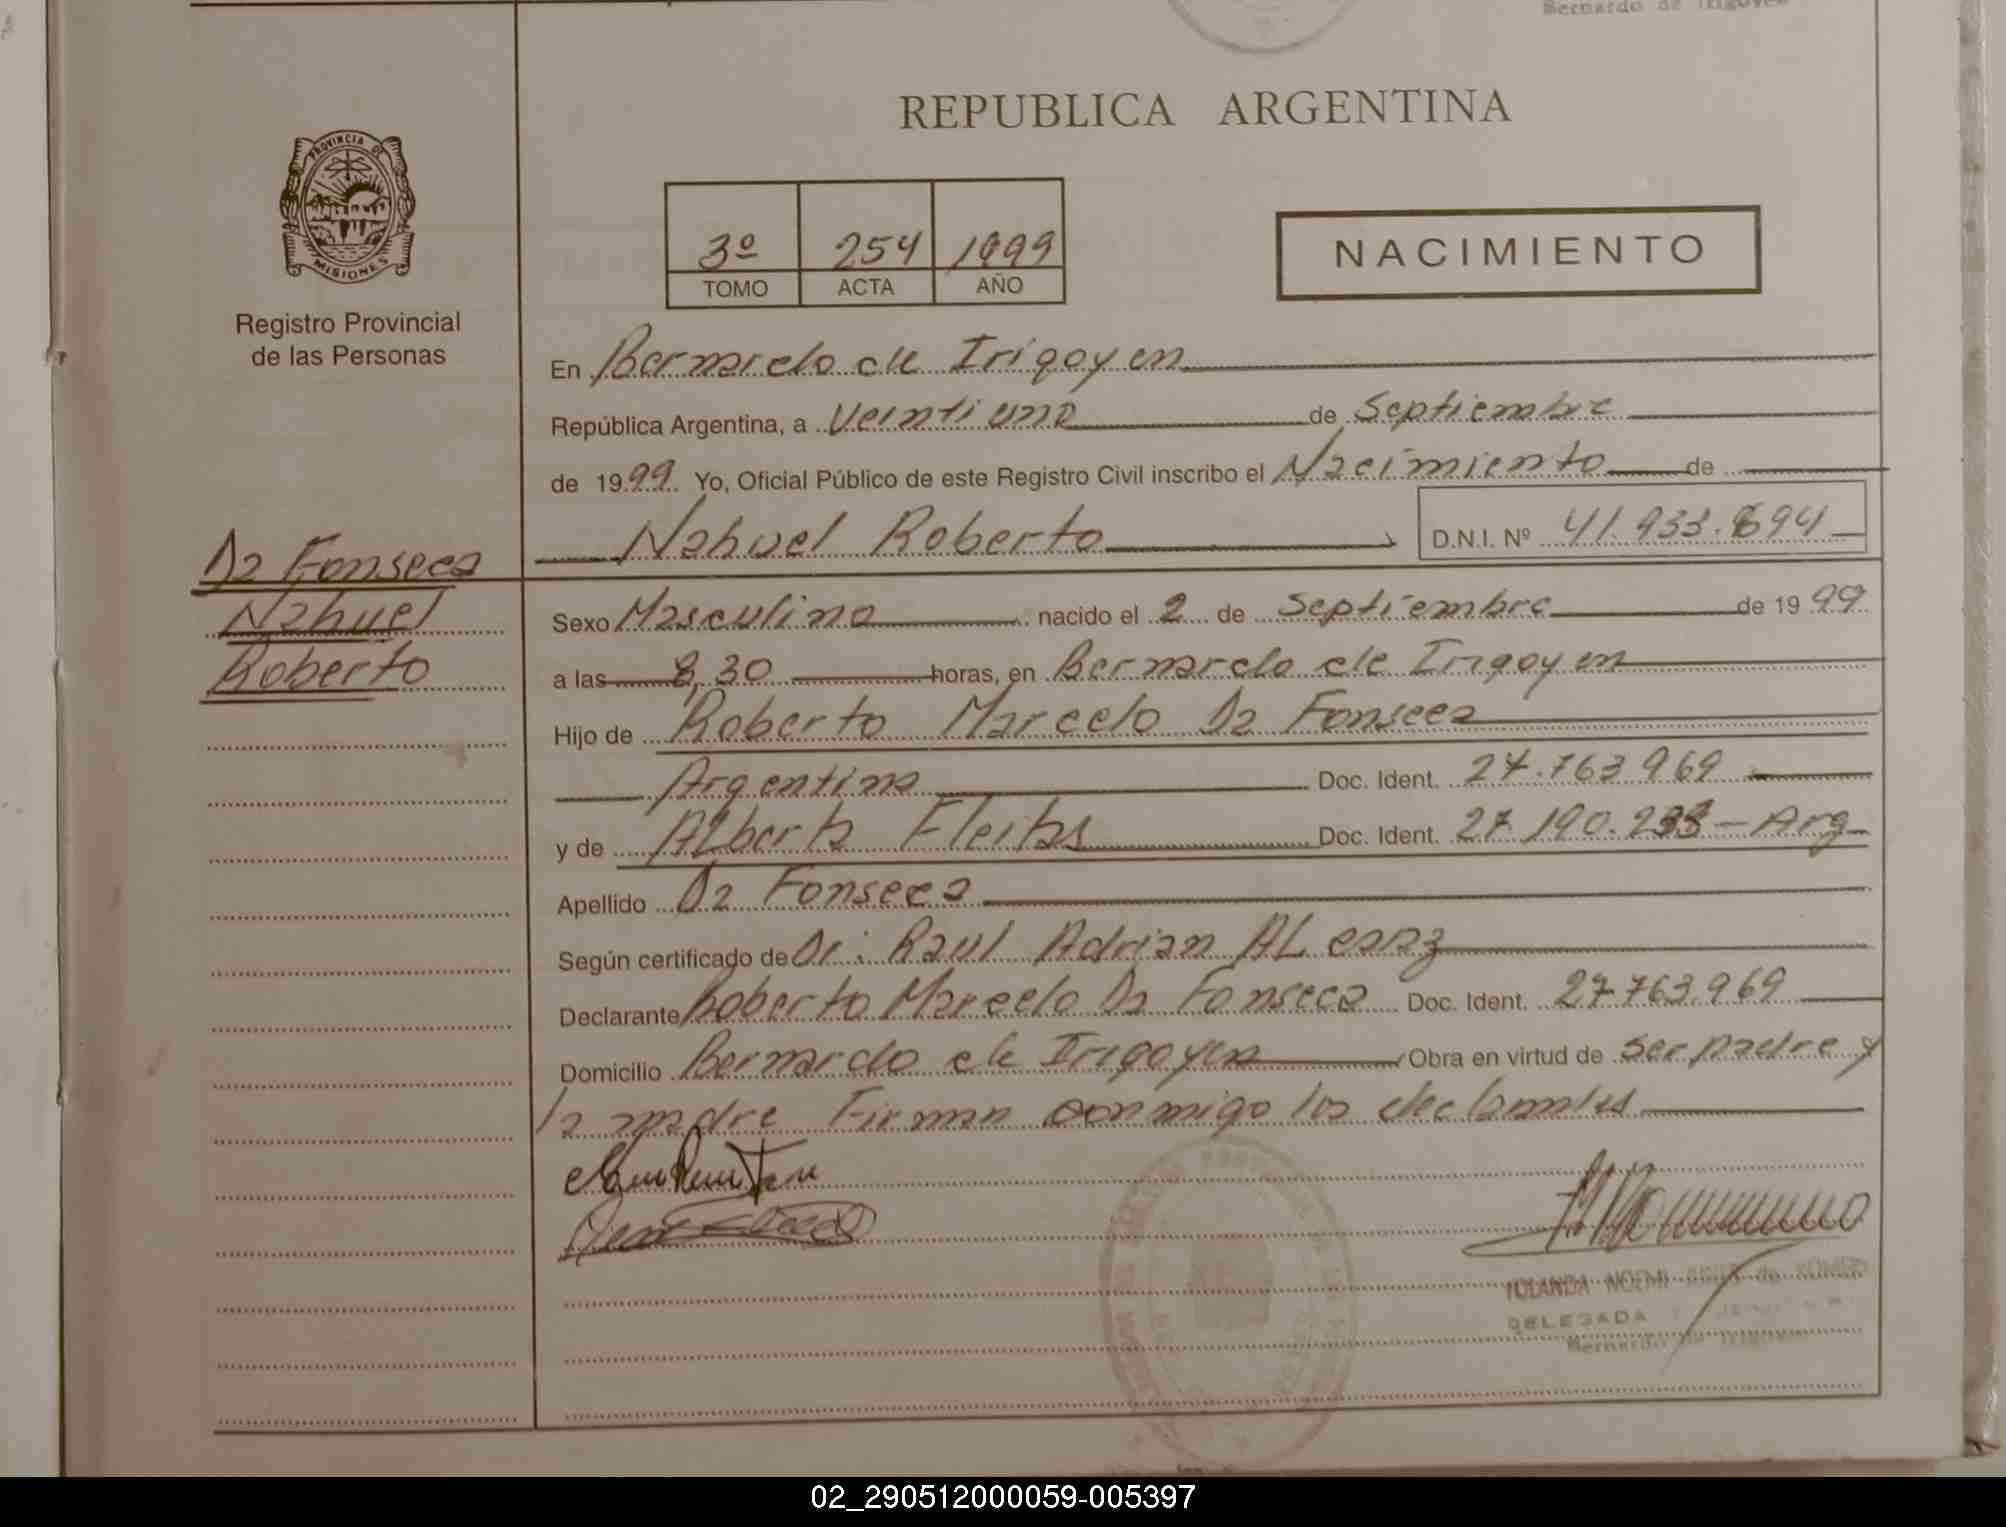 Bernardo de Irigoyen
REPUBLICA ARGENTINA
PROVINCIA DE
MISIONES
Registro Provincial
de las Personas
3º 254 1999
TOMO ACTA AÑO
NACIMIENTO
En Bernardo de Irigoyen
República Argentina, a Veintiuno de Septiembre
de 1999. Yo, Oficial Público de este Registro Civil inscribo el Nacimiento de
Nahuel Roberto D.N.I. Nº 41.933.694
Da Fonseca
Nahuel
Roberto
Sexo Masculino nacido el 2 de Septiembre de 1999
a las 8,30 horas, en Bernardo de Irigoyen
Hijo de Roberto Marcelo Da Fonseca
Argentina Doc. Ident. 27.763.969
y de Alberta Fleitas Doc. Ident. 27.190.233 - Arg
Apellido Da Fonseca
Según certificado de Dr: Raul Adrian ALcaraz
Declarante Roberto Marcelo Da Fonseca Doc. Ident. 27.763.969
Domicilio Bernardo de Irigoyen Obra en virtud de ser padre y
la madre Firman conmigo los declarantes
YOLANDA NOEMI
DELEGADA
Bernardo de Irigoyen
02_290512000059-005397